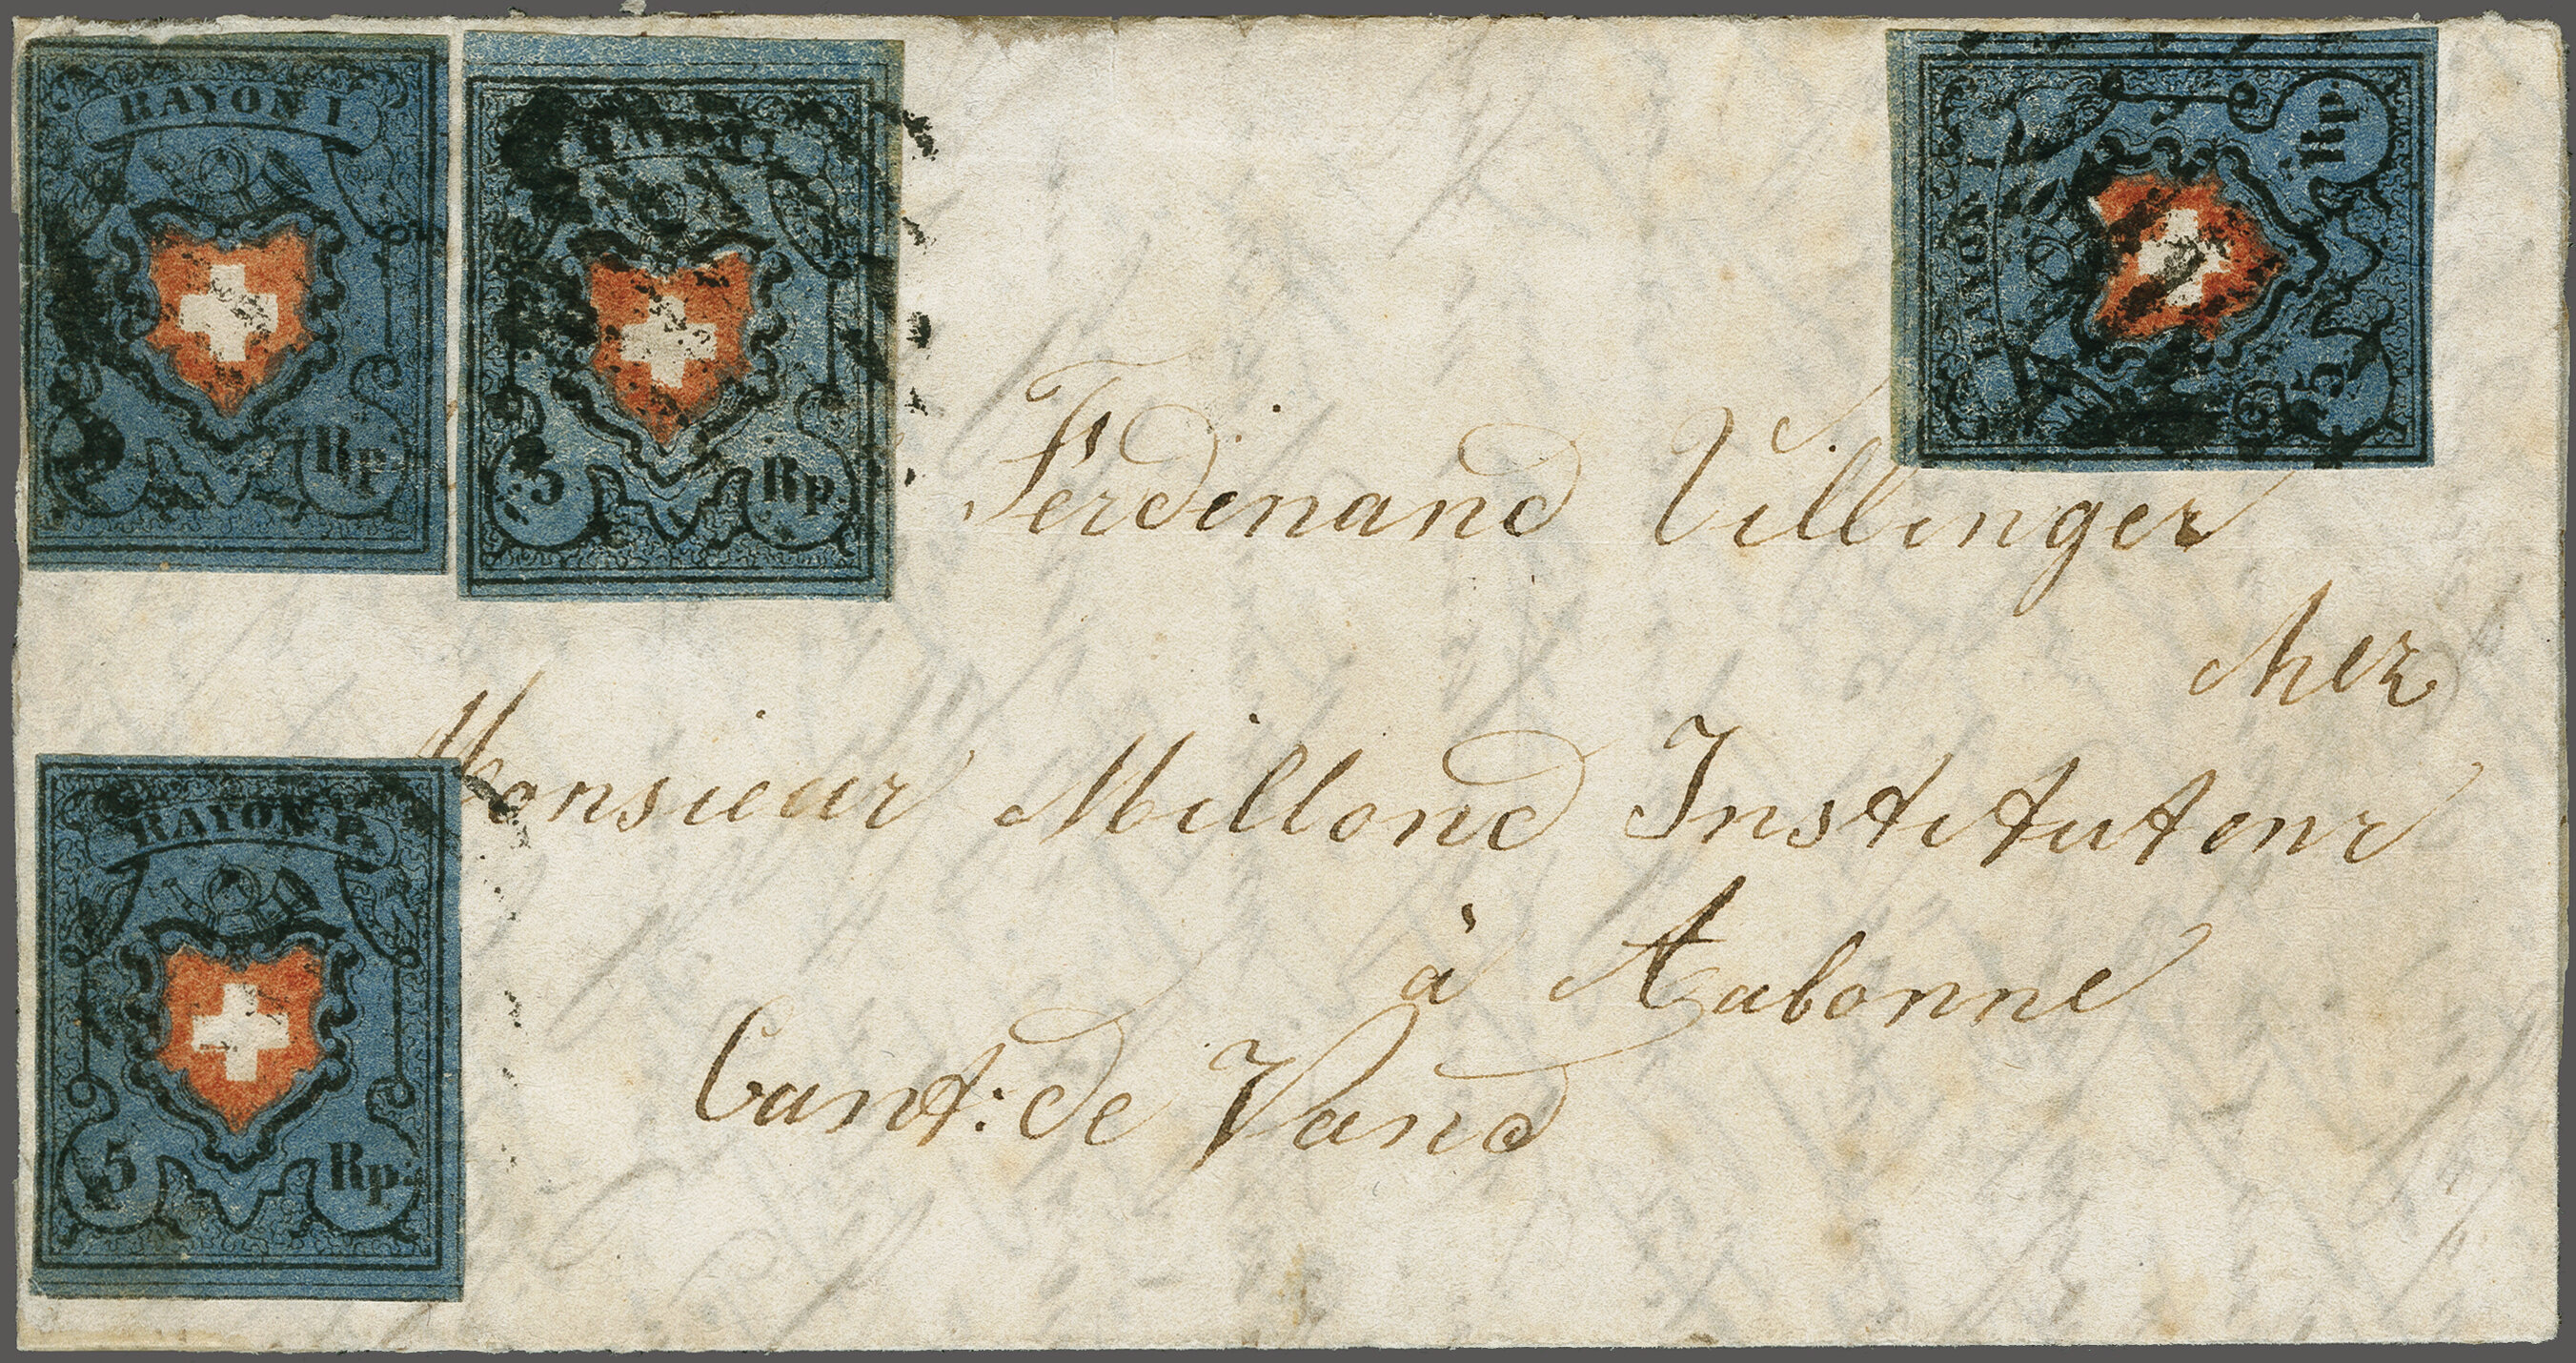 RAYON I.
Rp.
RAYON I.
5 Rp.
RAYON I.
5 Rp.
Ferdinand Villinger
cher
Monsieur Millond Instituteur
à Aubonne
Cant: de Vaud
RAYON I.
5 Rp.